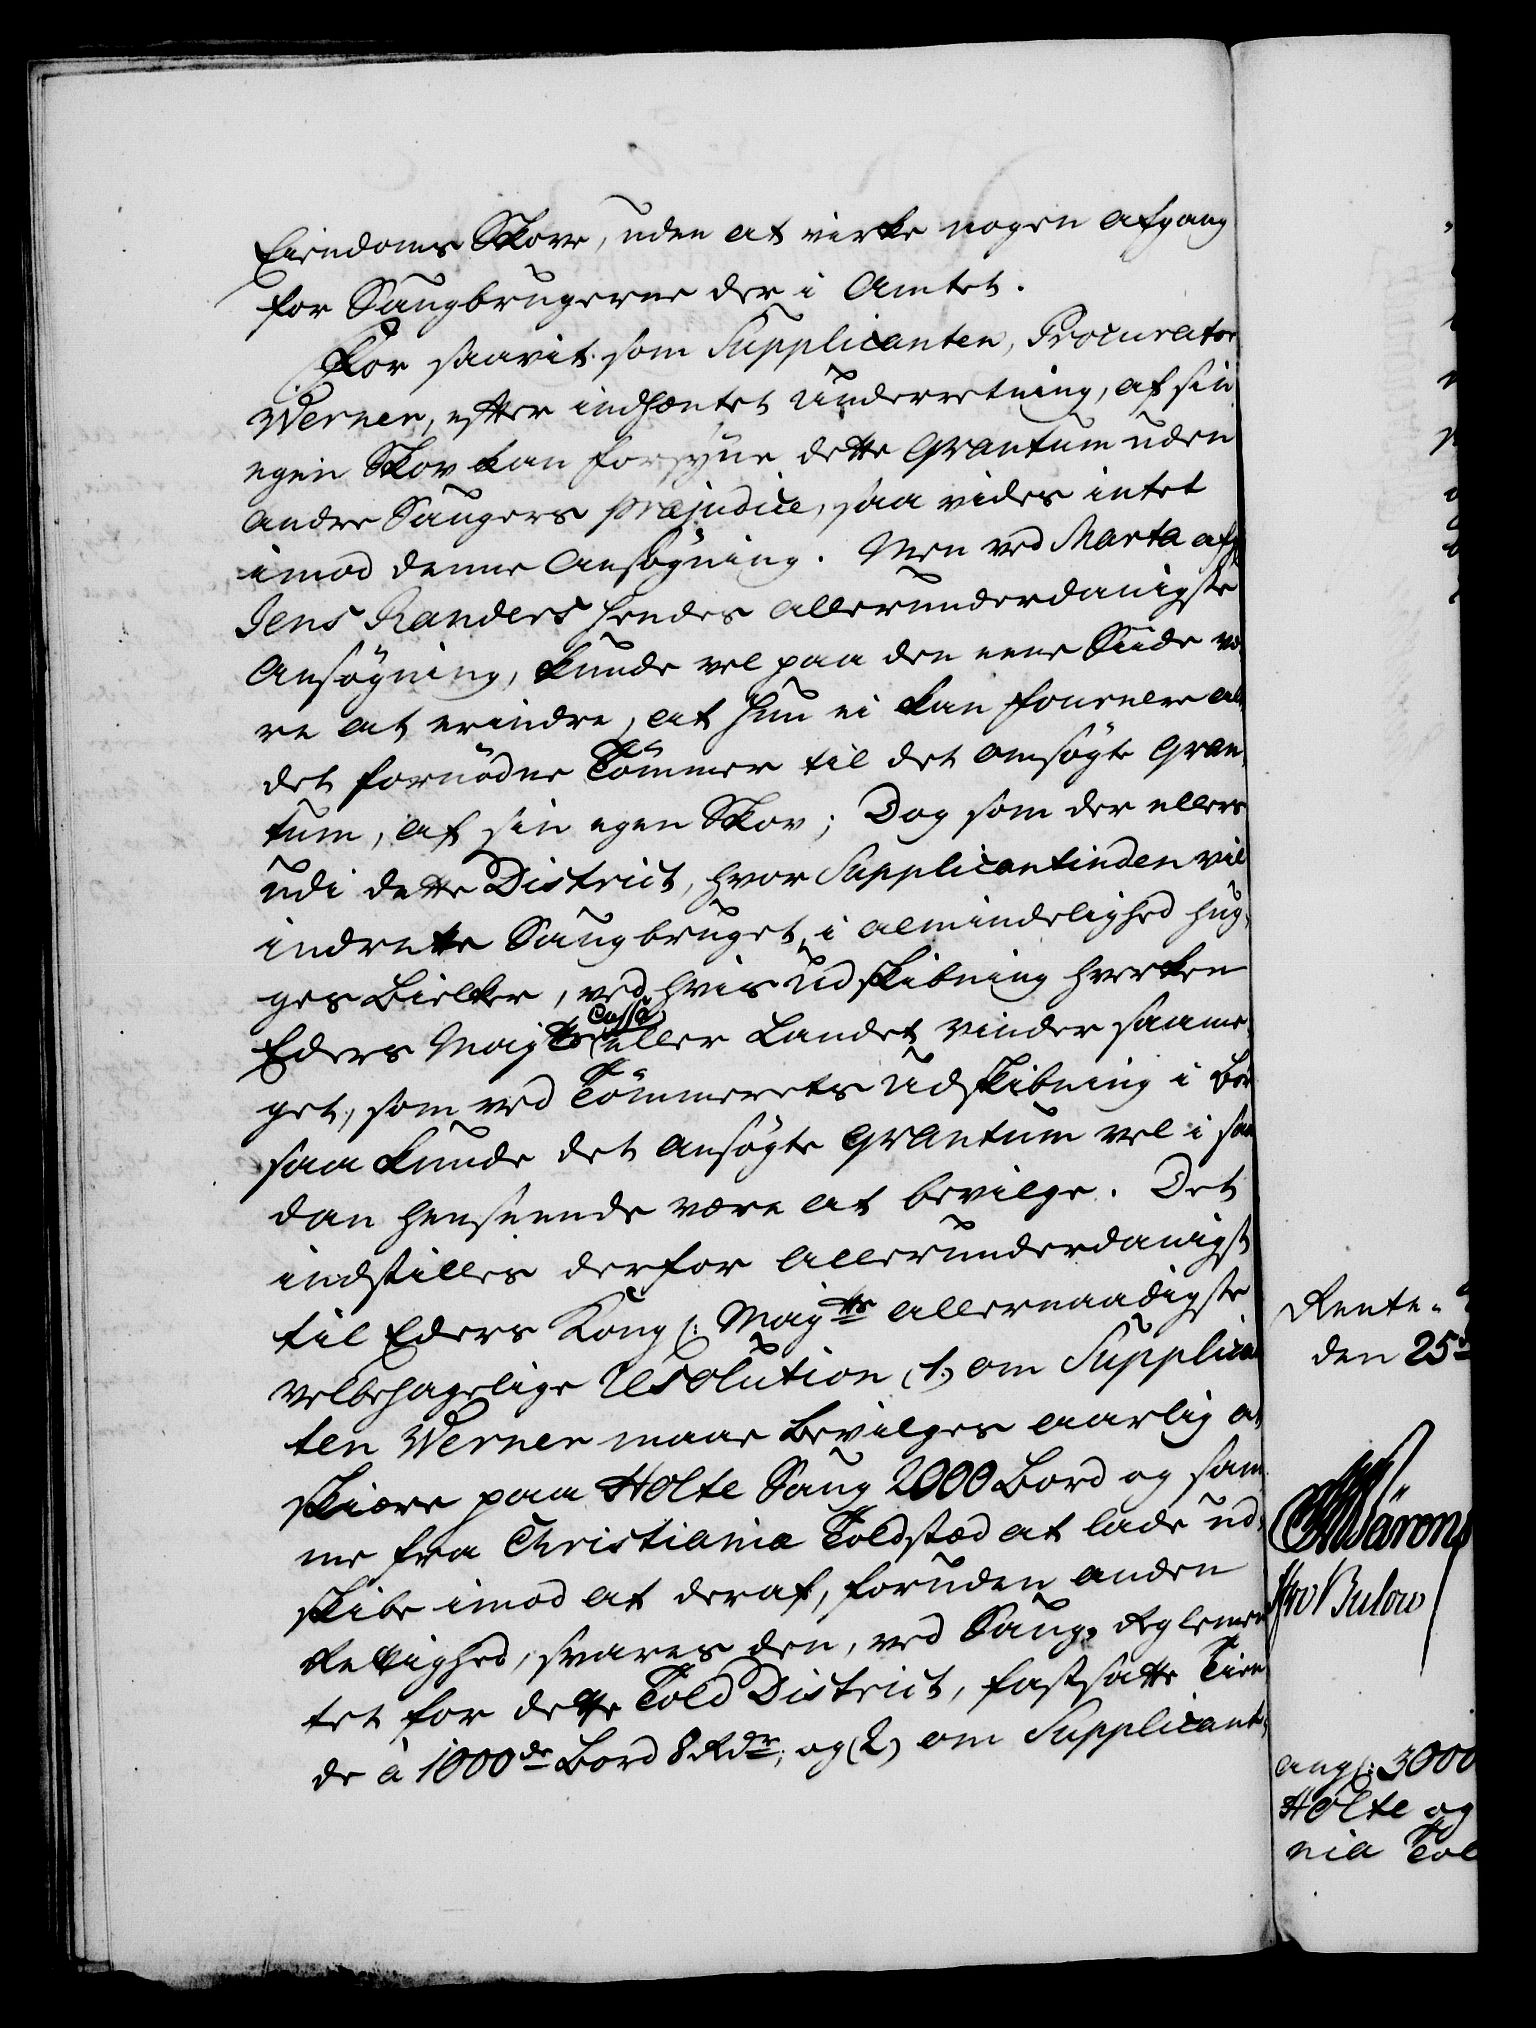 Eiendoms Skove, uden at virke nogen afgang
for Saugbrugerne der i Amtet.
For saavit som Supplicanten, Procurator
Werner, efter indhentet Underretning, af sin
egen Skov kan forsyne dette Qvantum uden
andre Saugers præjudice, saa vides intet
imod denne Ansøgning. Men ved Marta afg
Jens Randers hendes allerunderdanigste
Ansøgning, kunde vel paa den eene Siide væ¬
re at erindre, at hun ei kan fournere al
det fornødne Tømmer til det omsøgte Qvan¬
tum, af sin egen Skov; Dog som der ellers
udi dette District, hvor Supplicantinden vil
indrette Saugbruget, i almindelighed hug¬
ges Bielker, ved hvis Udskibning hverken
Eders Mayts Cassa eller Landet vinder saame¬
get, som ved Tømmerets Udskibning i Bor
saa kunde det ansøgte Qvantum vel i saa
dan henseende være at bevilge. Det
indstilles derfor allerunderdanigst
til Eders Kong: Mayts allernaadigste
velbehagelige Resolution (1.) om Supplican
ten Werner maae bevilges aarlig at
skiære paa Holte Saug 2000 Bord og sam¬
me fra Christiania Toldsted at lade ud¬
skibe imod at deraf, foruden anden
Rettighed, svares den, ved Saug-Reglemen
tet for dette Told District, fastsatte Tien
de à 1000de Bord 8 Rdr; og (2) om Supplicant¬
Rente-
den 25de
Bulow
ang: 3000
Holte og
nia Tol